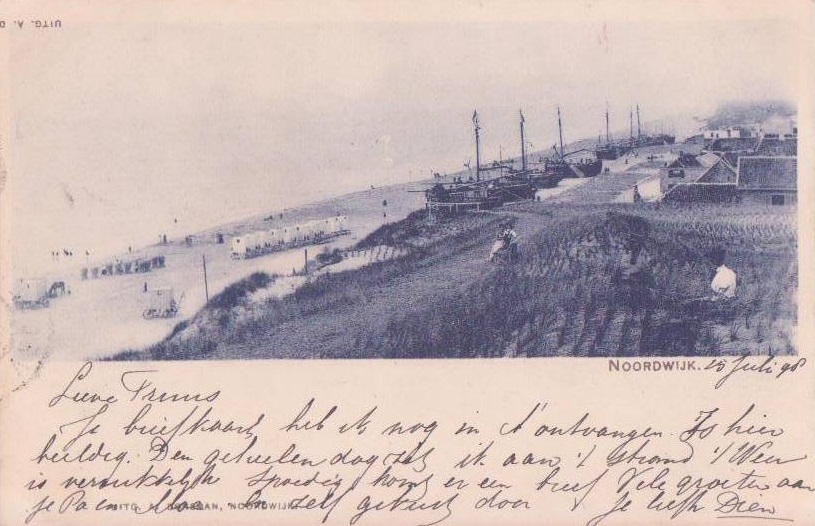 UITG. A. D
NOORDWIJK. 15 Juli 98
Lieve Truus
Je briefkaart heb ik nog in A ontvangen. Is hier
beeldig. Den geheelen dag zit ik aan 't strand 't Weer
is verrukkelijk Spoedig komt er een brief Vele groeten aan
je Pa en Ma zelf gekust door Je liefh Dien
UITG. A. NOORDWIJK.